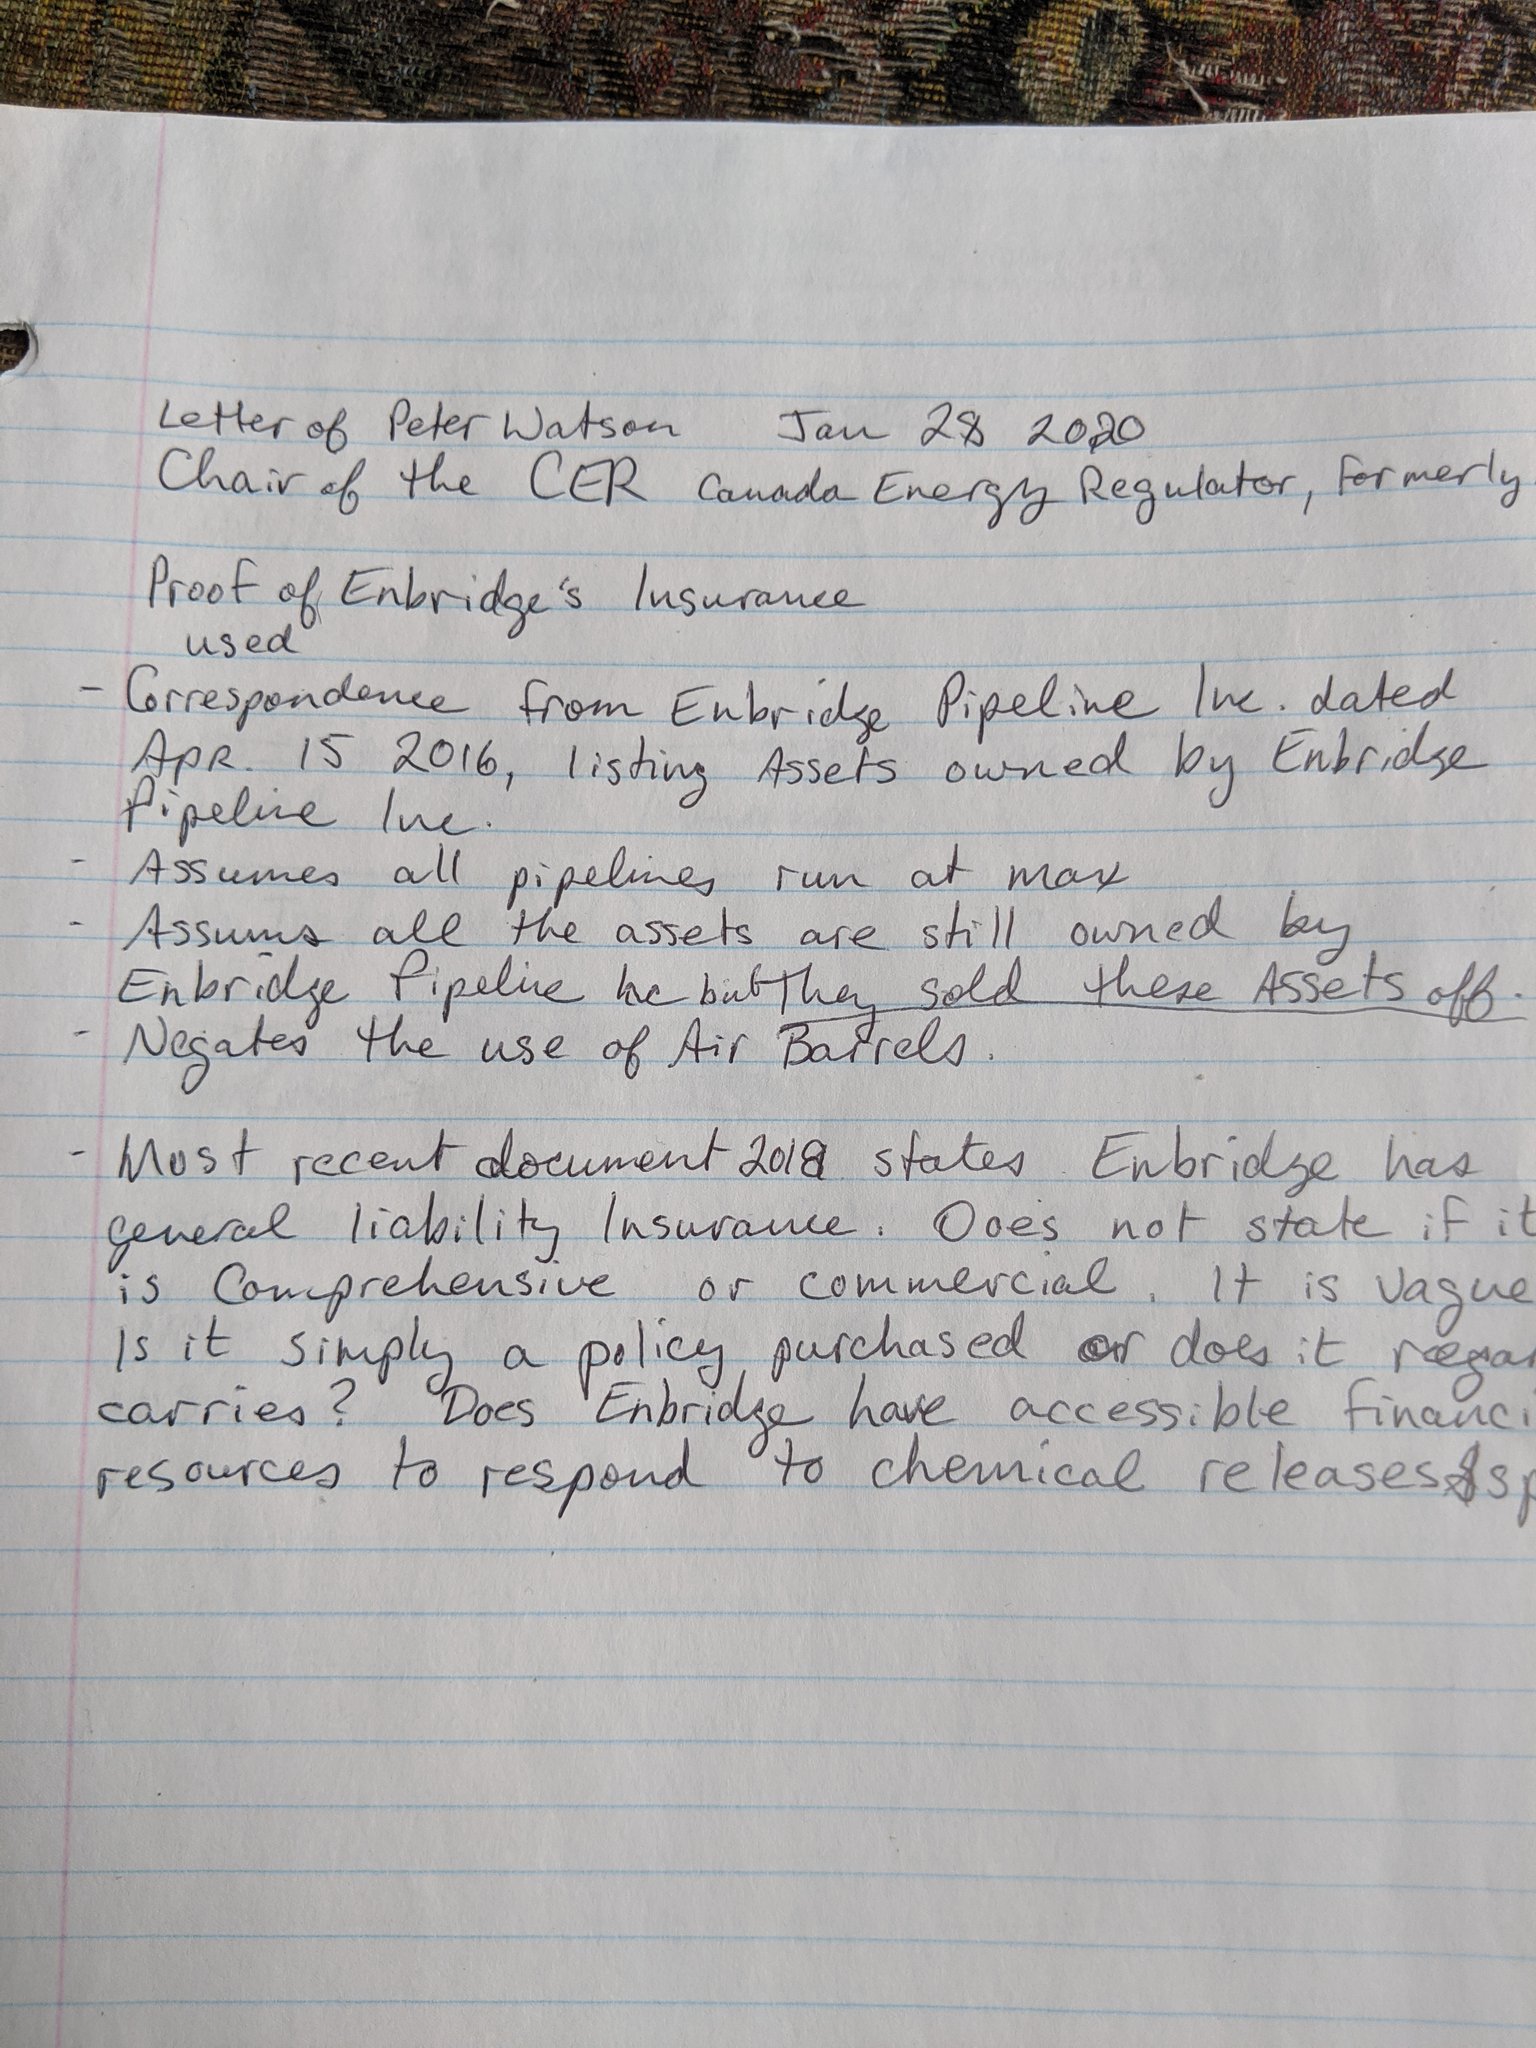 Letter of Peter Watson Jan 28 2020
Chair of the CER Canada Energy Regulator, formerly
Proof of Enbridge's Insurance
used
- Correspondence from Enbridge Pipeline Inc. dated
Apr. 15 2016, listing Assets owned by Enbridge
Pipeline Inc.
- Assumes all pipelines run at max
- Assums all the assets are still owned by
Enbridge Pipeline Inc but They sold these Assets off.
- Negates the use of Air Barrels.
- Most recent document 2018 states Enbridge has
general liability Insurance. Does not state if it
is Comprehensive or commercial. It is vague
Is it simply a policy purchased or does it
carries? Does Enbridge have accessible financi
resources to respond to chemical releases & sp